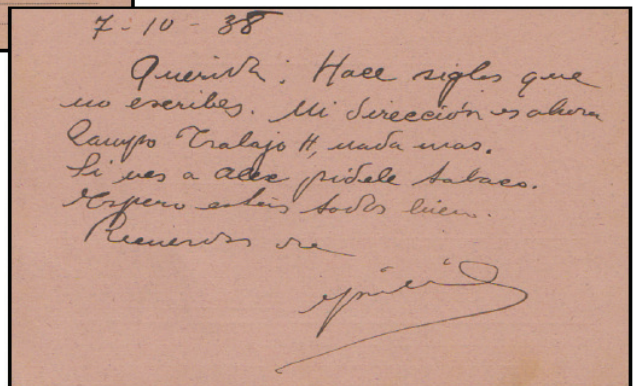 7-10-38
Querida: Hace siglos que
no escribes. Mi dirección es ahora
Campo Trabajo 4, nada mas.
Si ves a Alec pídele tabaco.
Espero esteis todos bien.
Recuerdos de